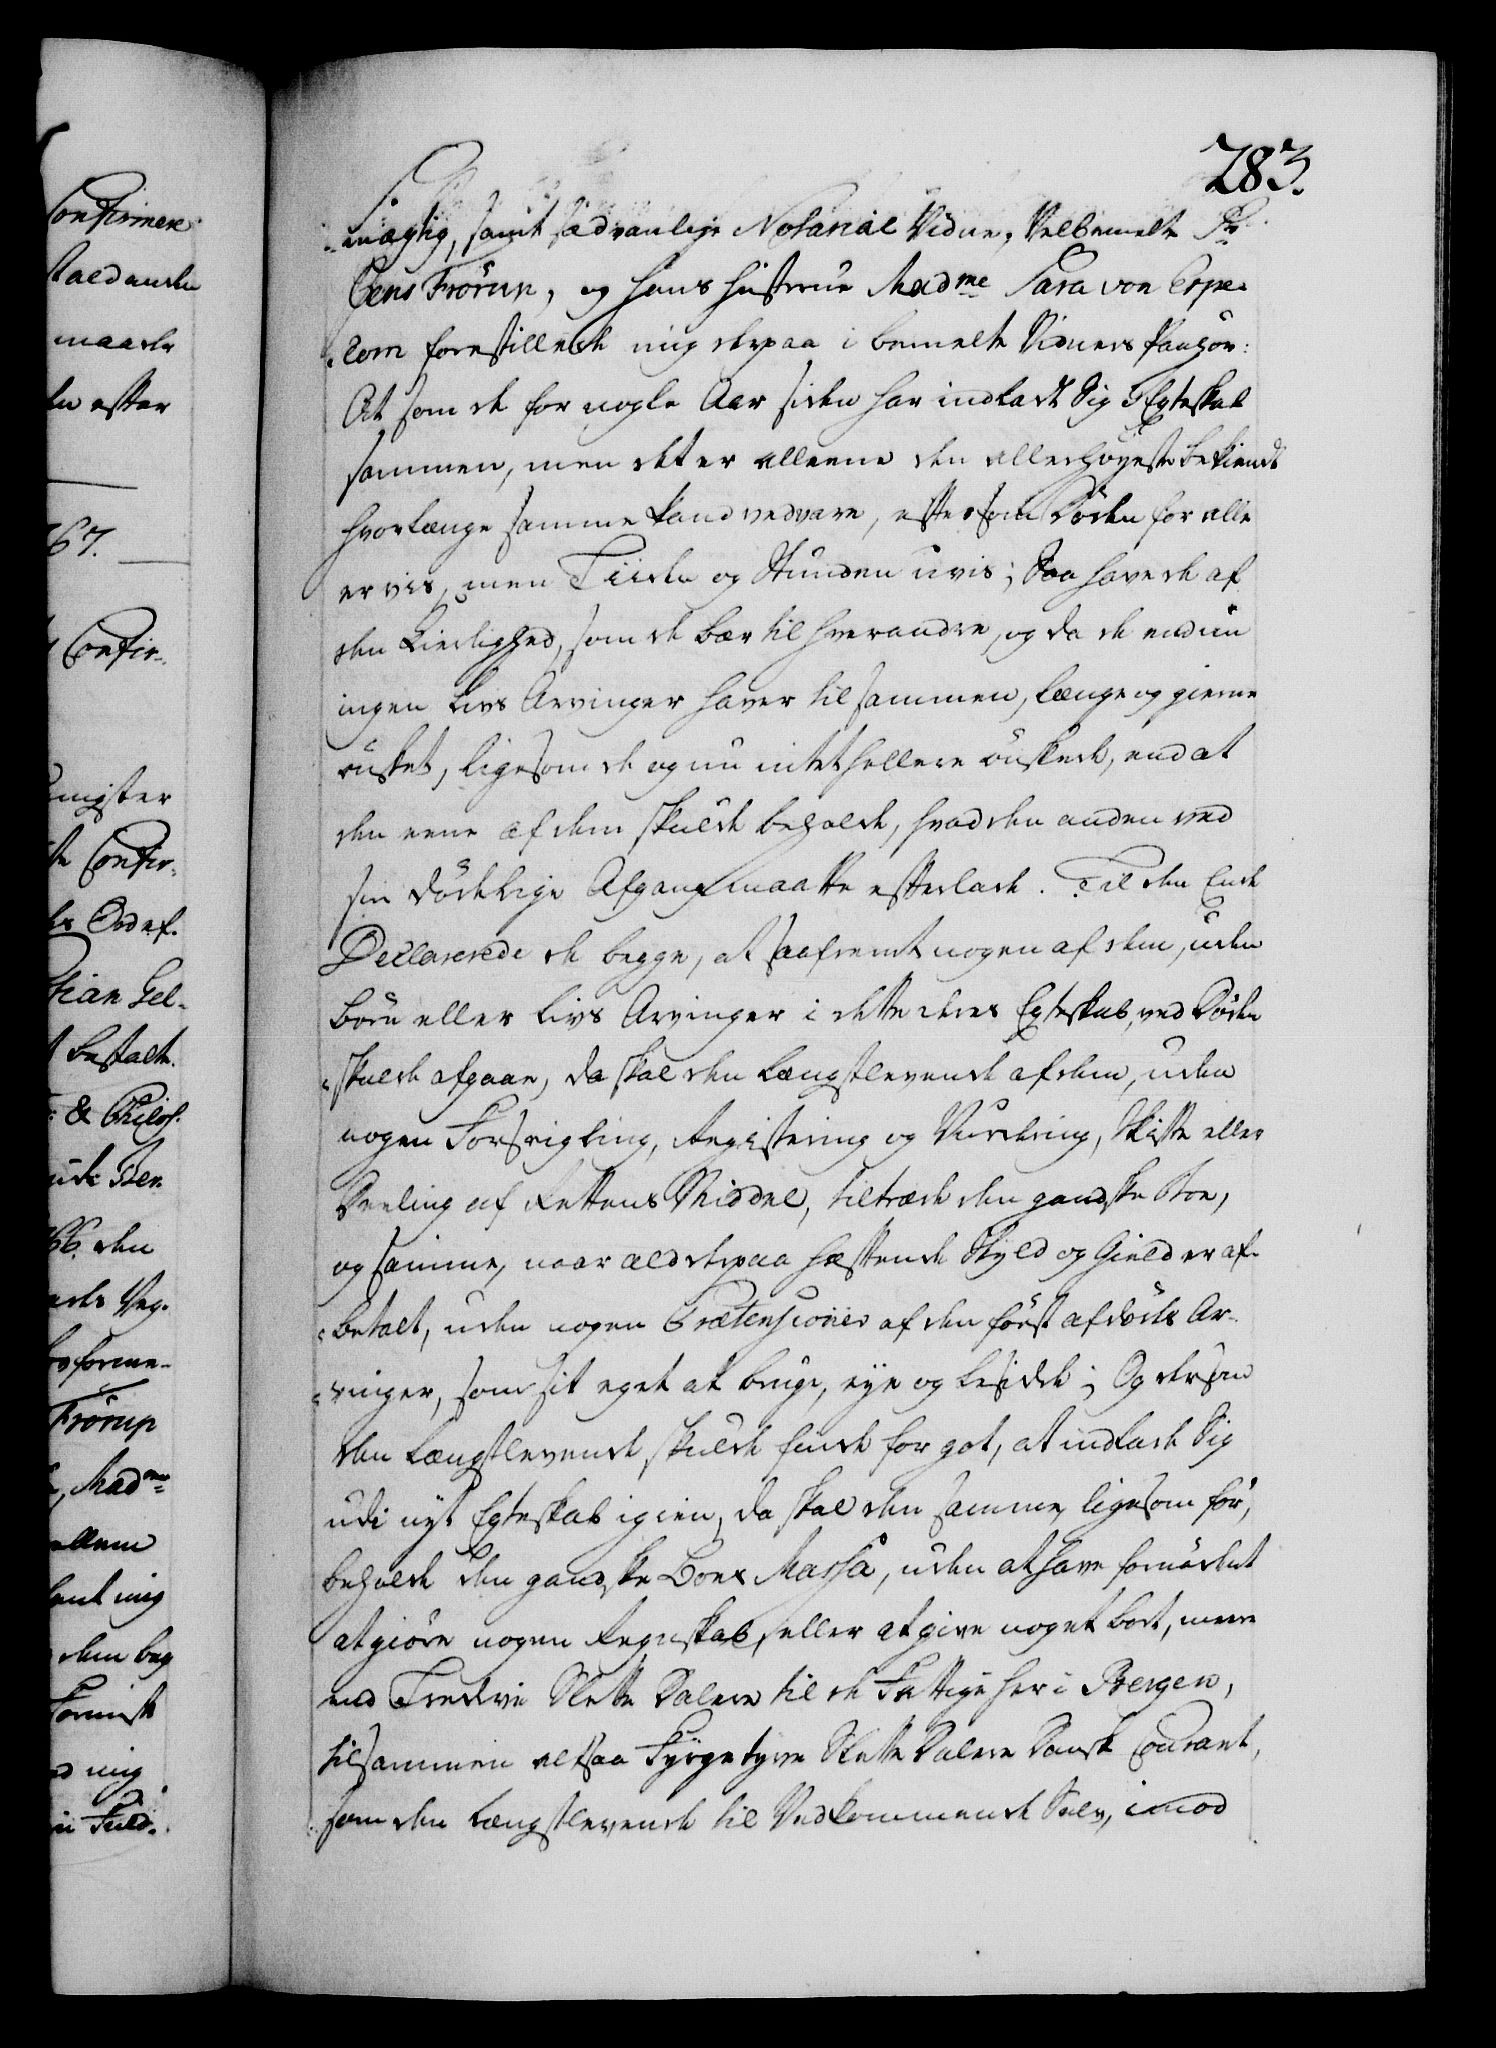 283.
mægtig, samt sædvanlige Notarial Vidne, Velbemelte Sr.
Jens Frörup, og hans Hustrue Madme Sara von Erpe-
com forestillede mig derpaa i bemelte Vidners Paahør:
At som de for nogle Aar siden har indladt sig i Egteskab
sammen, men det er alleene den allerhöyeste bekiendt
hvorlænge samme kand vedvare, eftersom Döden for alle
er vis, men Tiiden og Stunden uvis; Saa have de af
den Kierlighed, som de bær til hverandre, og da de endnu
ingen Livs Arvinger haver tilsammen, længe og gierne
önsket, ligesom de og nu intet hellere önskede, end at
den eene af dem skulde beholde, hvad den anden ved
sin dödelige Afgang maatte efterlade. Til den Ende
Declarerede de begge, at saafremt nogen af dem, uden
Börn eller Livs Arvinger i dette deres Egteskab, ved Döden
skulde afgaae, da skal den Længstlevende af dem, uden
nogen Forseigling, Registering og Vurdering, Skifte eller
Deeling af Rettens Middel, tiltræde den gandske Boe,
og samme, naar ald derpaa hæftende Skyld og Gield er af-
betalt, uden nogen Prætensioner af den först afdödes Ar-
vinger, som sit eget at bruge, eye og besidde; Og dersom
den Længstlevende skulde finde for got, at indlade Sig
udi nyt Egteskab igien, da skal den samme, ligesom för,
beholde den gandske Boes Massa, uden at have fornödent
at giöre nogen Regnskab, eller at give noget bort, meere
end Tredive Slette Dalere til de Fattige her i Bergen,
tilsammen altsaa Fyrgetyve Slette Dalere Dansk Courant,
som den Længstlevende til Vedkommende Selv, imod
Confirmere
maade
efter
67.
Confir-
Confir-
Ordef.
Gel-
& Philos.
66. den
Frörup
Madme
mig
den beg
mig
Fuld-